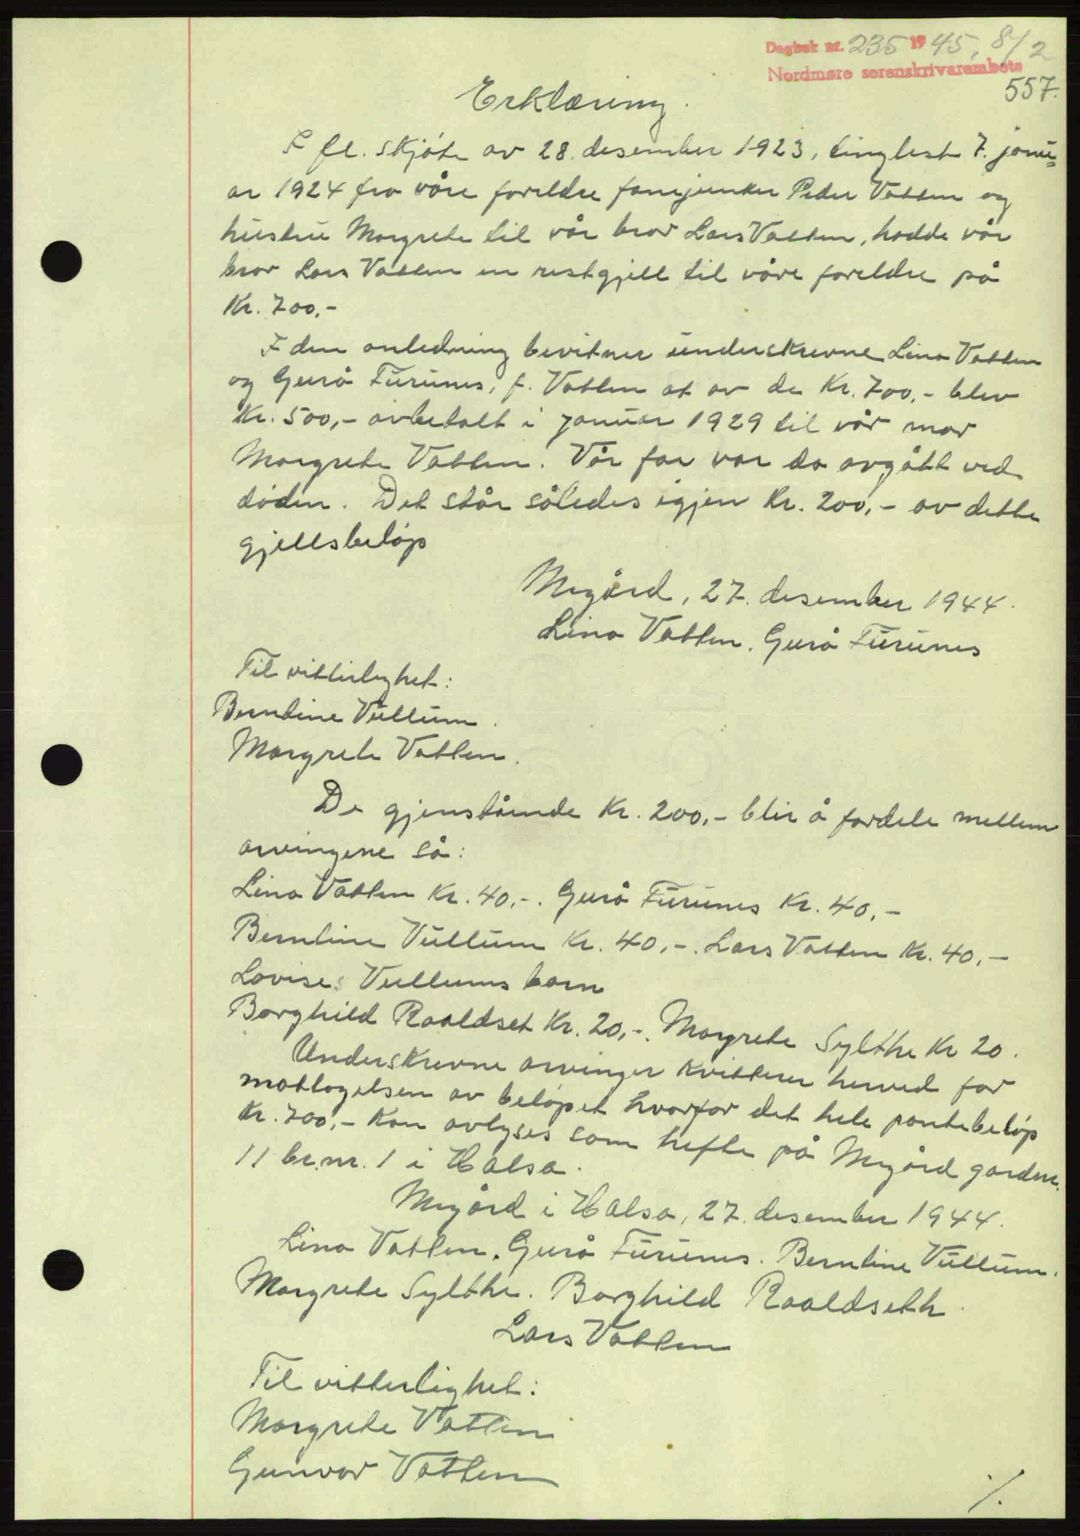 Dagbok nr. 235 1945, 8/2
Nordmøre sorenskrivarembete
557.
Erklæring.
I fl. skjøte av 28. desember 1923, tinglest 7. janu=
ar 1924 fra våre foreldre fanejunker Peder Vatten og
hustru Margrete til vår bror Lars Vatten, hadde vår
bror Lars Vatten en restgjell til våre foreldre på
Kr. 700,-
I den anledning bevitner underskrevne Lina Vatten
og Gurå Furunes, f. Vatten at av de Kr. 700,- blev
Kr. 500,- avbetalt i januar 1929 til vår mor
Margrete Vatten. Vår far var da avgått ved
døden. Det står således igjen Kr. 200,- av dette
gjellsbeløp
Megård, 27. desember 1944.
Lina Vatten. Gurå Furunes
Til vitterlighet:
Berntine Vullum.
Margrete Vatten.
De gjenstående Kr. 200,- blir å fordele mellem
arvingene så:
Lina Vatten Kr. 40,-. Gurå Furunes Kr. 40,-
Berntine Vullum Kr. 40,-. Lars Vatten Kr. 40,-
Lovise Vullums barn
Borghild Raaldset Kr. 20,-. Margrete Sylthe Kr 20.
Underskrevne arvinger kvitterer herved for
mottagelsen av beløpet hvorfor det hele pantebeløp
Kr. 700,- kan avlyses som hefte på Megård garden
11 br.nr. 1 i Halsa.
Megård i Halsa, 27. desember 1944.
Lina Vatten. Gurå Furunes. Berntine Vullum.
Margrete Sylthe. Borghild Raaldseth.
Lars Vatten
Til vitterlighet:
Margrete Vatten
Gunvor Vatten
./.